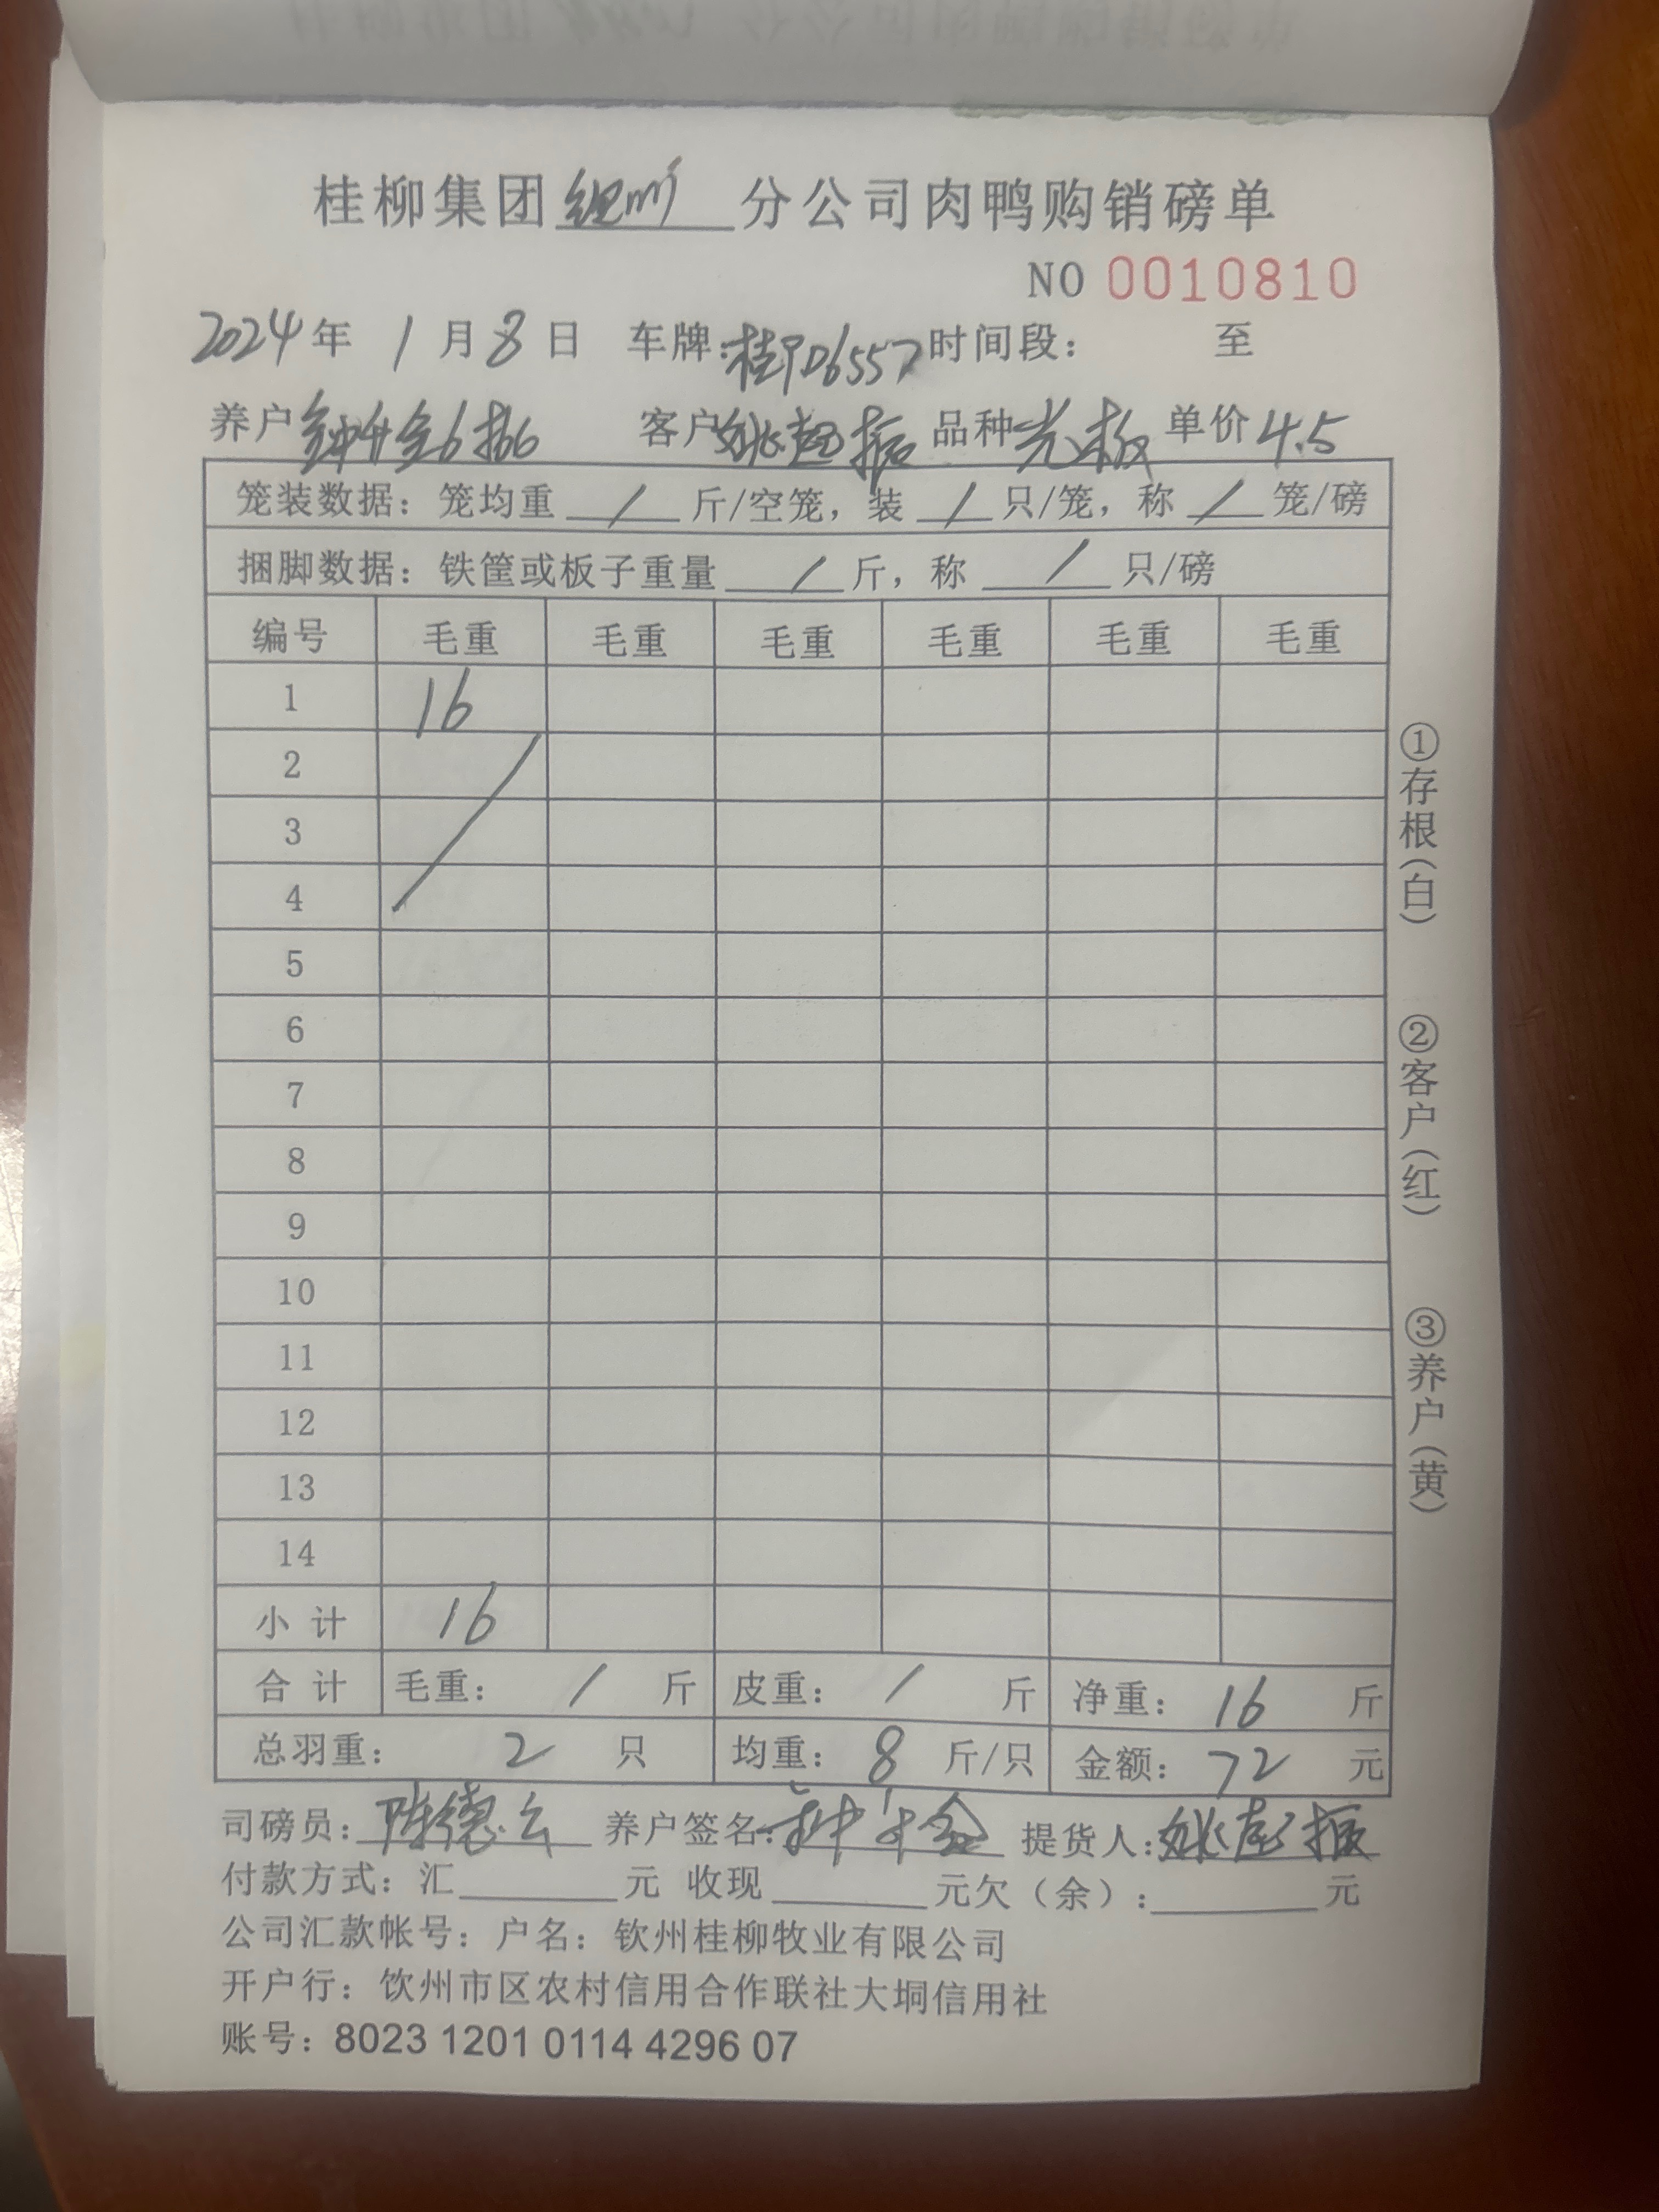 桂柳集团 钦州 分公司肉鸭购销磅单
NO 0010810
2024年 1月8日 车牌：桂PD6557 时间段： 至
养户 客户 姚 振 品种 光板 单价 4.5
笼装数据：笼均重 / 斤/空笼，装 / 只/笼，称 / 笼/磅
捆脚数据：铁筐或板子重量 / 斤，称 / 只/磅
编号 毛重 毛重 毛重 毛重 毛重 毛重
1 16
2
3
4
5
6
7
8
9
10
11
12
13
14
小计 16
合计 毛重： / 斤 皮重： / 斤 净重： 16 斤
总羽重： 2 只 均重： 8 斤/只 金额： 72 元
司磅员：陈德云 养户签名： 提货人：姚 振
付款方式：汇 元 收现 元欠（余）： 元
公司汇款帐号：户名：钦州桂柳牧业有限公司
开户行：饮州市区农村信用合作联社大垌信用社
账号：8023 1201 0114 4296 07
①存根（白）
②客户（红）
③养户（黄）